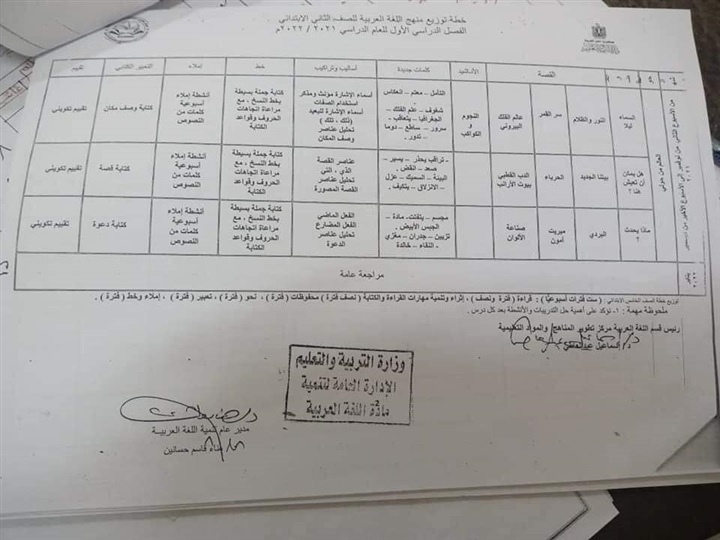 خطة توزيع منهج اللغة العربية للصف الثاني الابتدائي
الفصل الدراسي الأول للعام الدراسي ٢٠٢١ / ٢٠٢٢م
القصة
الأناشيد
كلمات جديدة
أساليب وتراكيب
خط
إملاء
التعبير الكتابي
تقييم
من الأسبوع الثاني من نوفمبر إلى الأسبوع الأخير من ديسمبر ٢٠٢١
العالم من حولي
السماء ليلا
النور والظلام
سر القمر
عالم الفلك البيروني
النجوم و الكواكب
التأمل – معتم – انعكاس
شغوف – عالم الفلك –
الجغرافيا – يتعاقب –
سرور – ساطع – دوما
– تدور .
أسماء الإشارة مؤنث ومذكر
استخدام الصفات
أسماء الإشارة للبعيد
( ذلك ، تلك )
تحليل عناصر
وصف المكان
كتابة جملة بسيطة
بخط النسخ ، مع
مراعاة اتجاهات
الحروف وقواعد
الكتابة
أنشطة إملاء
أسبوعية
كلمات من
النصوص
كتابة وصف مكان
تقييم تكويني
هل يمكن
أن تعيش
هنا ؟
بيتنا الجديد
الحرباء
الدب القطبي
بيوت الأرانب
- تراقب بحذر – يسير –
صعد – انقض .
البيئة – السميك – عزل
– الانزلاق – يتكيف .
عناصر القصة
الذي ، التي
تحليل عناصر
القصة المصورة
كتابة جملة بسيطة
بخط النسخ ، مع
مراعاة اتجاهات
الحروف وقواعد
الكتابة
أنشطة إملاء
أسبوعية
كلمات من
النصوص
كتابة قصة
تقييم تكويني
ماذا يحدث
؟
البردي
ميريت
آمون
صناعة
الألوان
مجسم – يلتفت – مادة –
الجبس الأبيض .
تزيين – جدران – مغزي
– النقاء – خالدة
الفعل الماضي
الفعل المضارع
تحليل عناصر
الدعوة
كتابة جملة بسيطة
بخط النسخ ، مع
مراعاة اتجاهات
الحروف وقواعد
الكتابة
أنشطة إملاء
أسبوعية
كلمات من
النصوص
كتابة دعوة
تقييم تكويني
يناير
٢٠٢٢
مراجعة عامة
توزيع خطة الصف الخامس الابتدائي : ( ست فترات أسبوعيًا ) : قراءة ( فترة ونصف ) ، إثراء وتنمية مهارات القراءة والكتابة ( نصف فترة ) محفوظات ( فترة ) ، نحو ( فترة ) ، تعبير ( فترة ) ، إملاء وخط ( فترة ) .
ملحوظة مهمة : ١- نؤكد على أهمية حل التدريبات والأنشطة بعد كل درس .
رئيس قسم اللغة العربية مركز تطوير المناهج والمواد التعليمية
وزارة التربية والتعليم
الإدارة العامة لتنمية
مادة اللغة العربية
مدير عام تنمية اللغة العربية
هناء قاسم حسانين